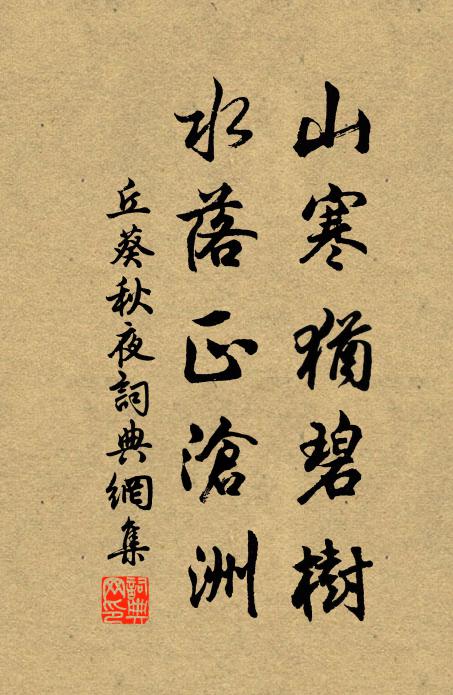 山寒猶碧樹
水落正滄洲
丘葵秋夜詞典網集
詞典网印